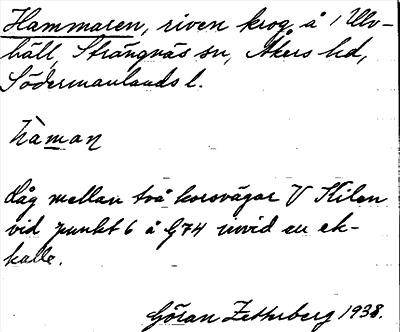 Hammaren, riven krog å Ulv-
häll, Strängnäs sn, Åkers hd,
Södermanlands l.
hàman
Låg mellan två korsvägar V Kilen
vid punkt 6 å G74 invid en ek-
kalle.
Göran Zetterberg 1938.